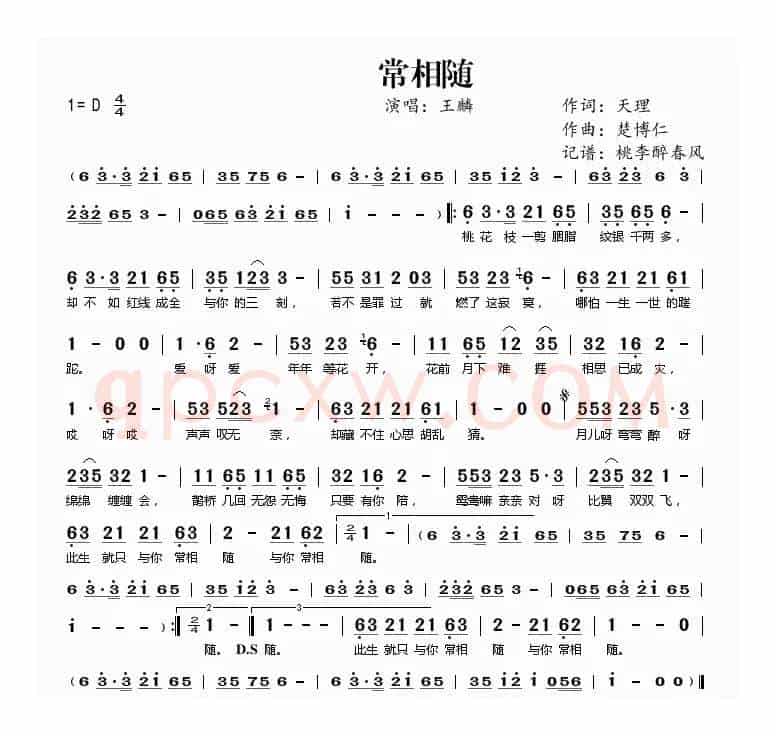 常相随
1=D 4/4 演唱：王麟 作词：天理
作曲：楚博仁
记谱：桃李醉春风
( 6 3·3 21 65 | 35 75 6 - | 6 3·3 21 65 | 35 12 3 - | 63 23 6 3 |
232 65 3 - | 065 63 21 65 | 1 - - - ) ‖: 6 3·3 21 65 | 35 65 6 - |
桃 花 枝 一剪 胭脂 纹银 千两 多，
6 3·3 21 65 | 35 123 3 - | 55 31 2 03 | 55 23 16 - | 21 21 21 61 |
却 不 如 红线 成全 与你 的三 刻， 若不 是罪 过 就 燃了 这寂 寞， 哪怕 一生 一世 的蹉
1 - 0 0 | 1 ·6 2 - | 53 23 16 - | 11 65 12 35 | 32 16 2 - |
跎。 爱 呀 爱 年年 等花 开， 花前 月下 难 捱 相思 已成 灾，
1 · 6 2 - | 53 523 3 - | 63 21 21 61 | 1 - 0 0 | 553 223 5 ·3 |
哎 呀 哎 声声 叹无 奈， 却藏 不住 心思 胡乱 猜。 月儿呀 弯弯 醉 呀
235 32 1 - | 11 65 11 65 | 32 12 1 - | 553 223 5 ·3 | 235 32 1 - |
绵绵 缠缠 会， 鹊桥 几回 无怨 无悔 只要 有你 陪， 鸳鸯嘛 亲亲 对 呀 比翼 双双 飞，
63 21 21 63 | 2 - 21 62 | 2/4 1 - | 1 ( 6 3·3 21 65 | 35 75 6 - |
此生 就只 与你 常相 随 与你 常相 随。
6 3·3 21 65 | 35 12 3 - | 63 23 6 3 | 232 65 3 - | 065 63 21 65 |
1 - - - ) :‖ 2 2/4 1 - ‖ 3 1 - - - | 63 21 21 63 | 2 - 21 62 | 1 - - 0 |
随。 D.S 随。 此生 就只 与你 常相 随 与你 常相 随。
( 6 3·3 21 65 | 35 75 6 - | 6 3·3 21 65 | 35 12 1 056 | 1 - 0 0 )‖
qpcxw.com